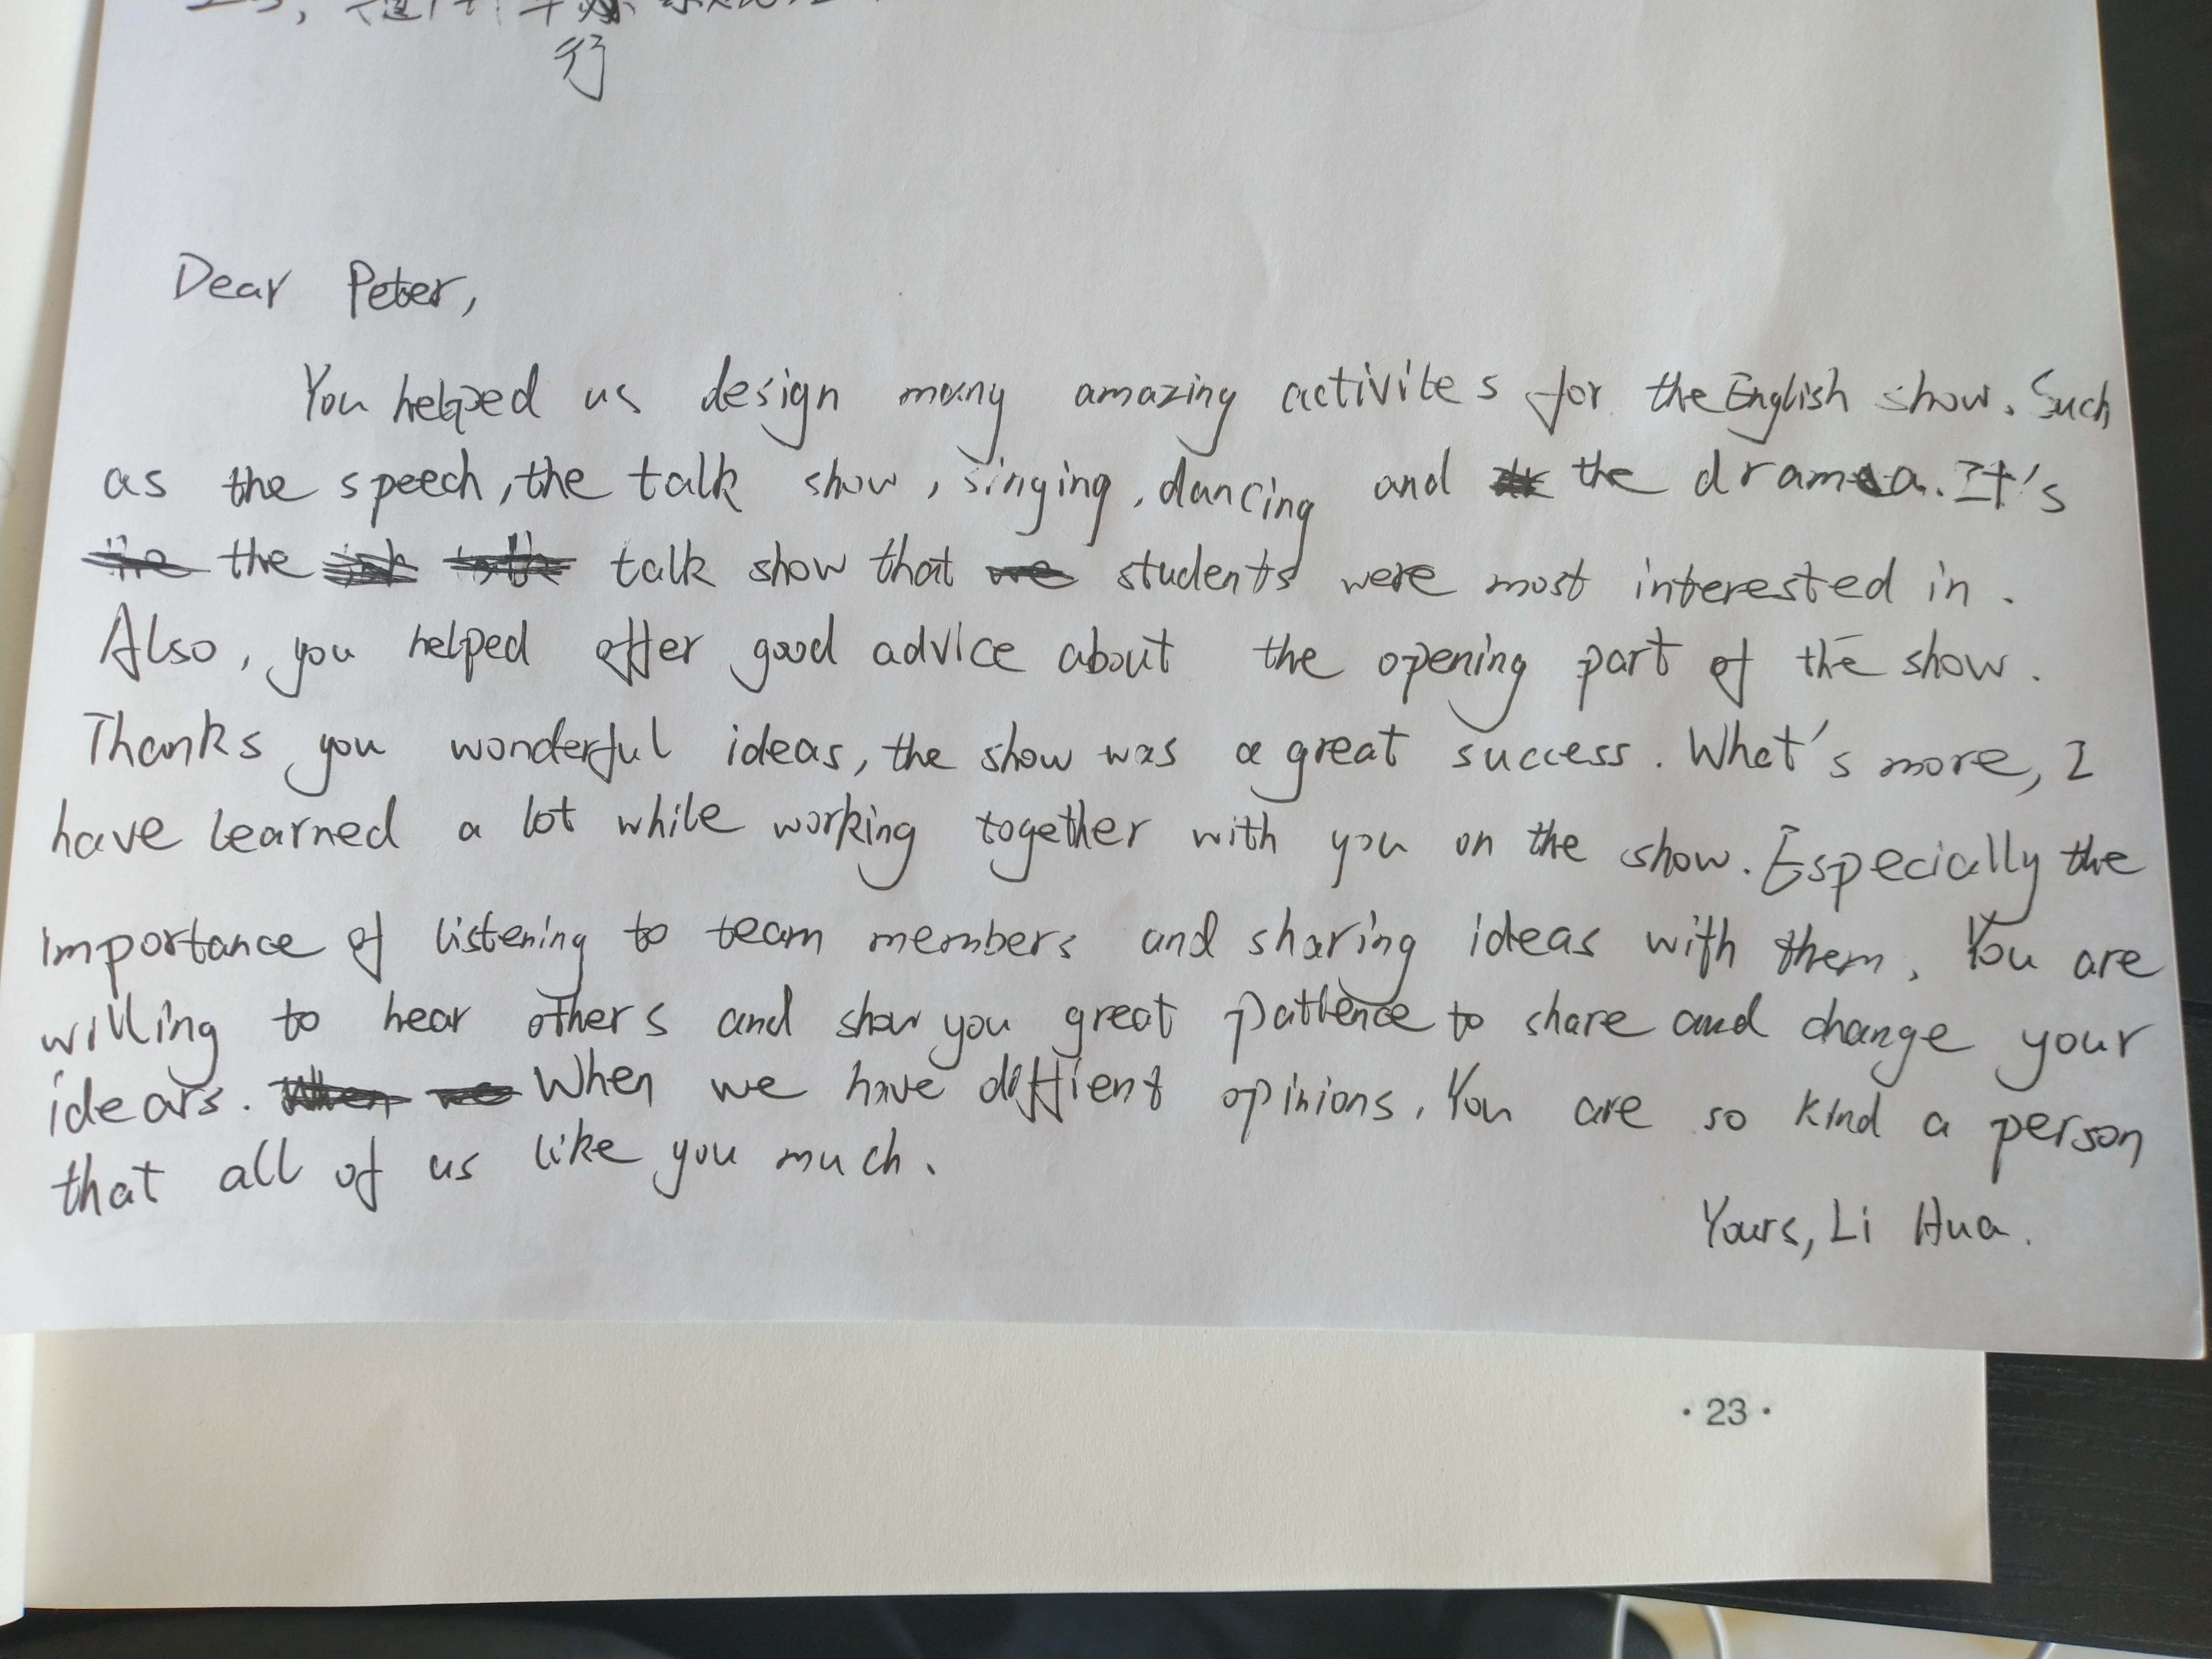 行
Dear Peter,
You helped us design many amazing activites for the English show. Such
as the speech, the talk show, singing, dancing and the drama. It's
the talk show that students were most interested in.
Also, you helped offer good advice about the opening part of the show.
Thanks you wonderful ideas, the show was a great success. What's more, I
have learned a lot while working together with you on the show. Especially the
importance of listening to team members and sharing ideas with them. You are
willing to hear others and show you great patience to share and change your
idears. When we have diffient opinions. You are so kind a person
that all of us like you much.
Yours, Li Hua.
·23·